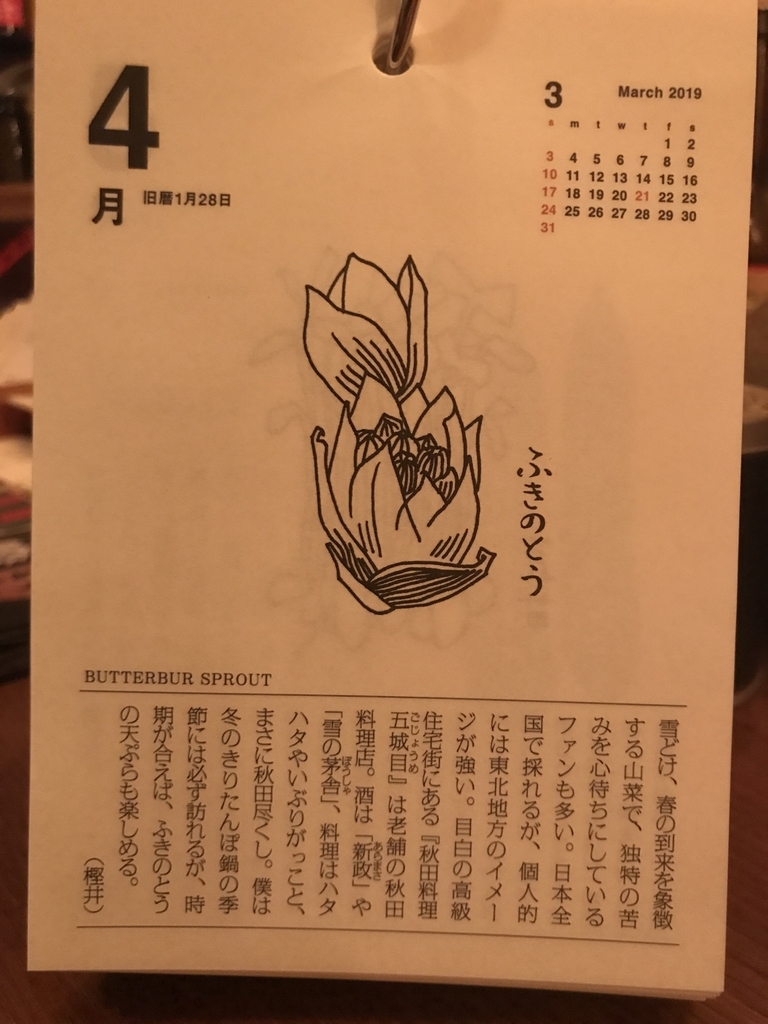 4
月
旧暦1月28日
3 March 2019
s m t w t f s
1 2
3 4 5 6 7 8 9
10 11 12 13 14 15 16
17 18 19 20 21 22 23
24 25 26 27 28 29 30
31
ふきのとう
BUTTERBUR SPROUT
雪どけ、春の到来を象徴
する山菜で、独特の苦
みを心待ちにしている
ファンも多い。日本全
国で採れるが、個人的
には東北地方のイメー
ジが強い。目白の高級
住宅街にある『秋田料理
五城目』は老舗の秋田
ごじょうめ
料理店。酒は「新政」や
あらまさ
「雪の茅舎」、料理はハタ
ぼうしゃ
ハタやいぶりがっこと、
まさに秋田尽くし。僕は
冬のきりたんぽ鍋の季
節には必ず訪れるが、時
期が合えば、ふきのとう
の天ぷらも楽しめる。
（樫井）